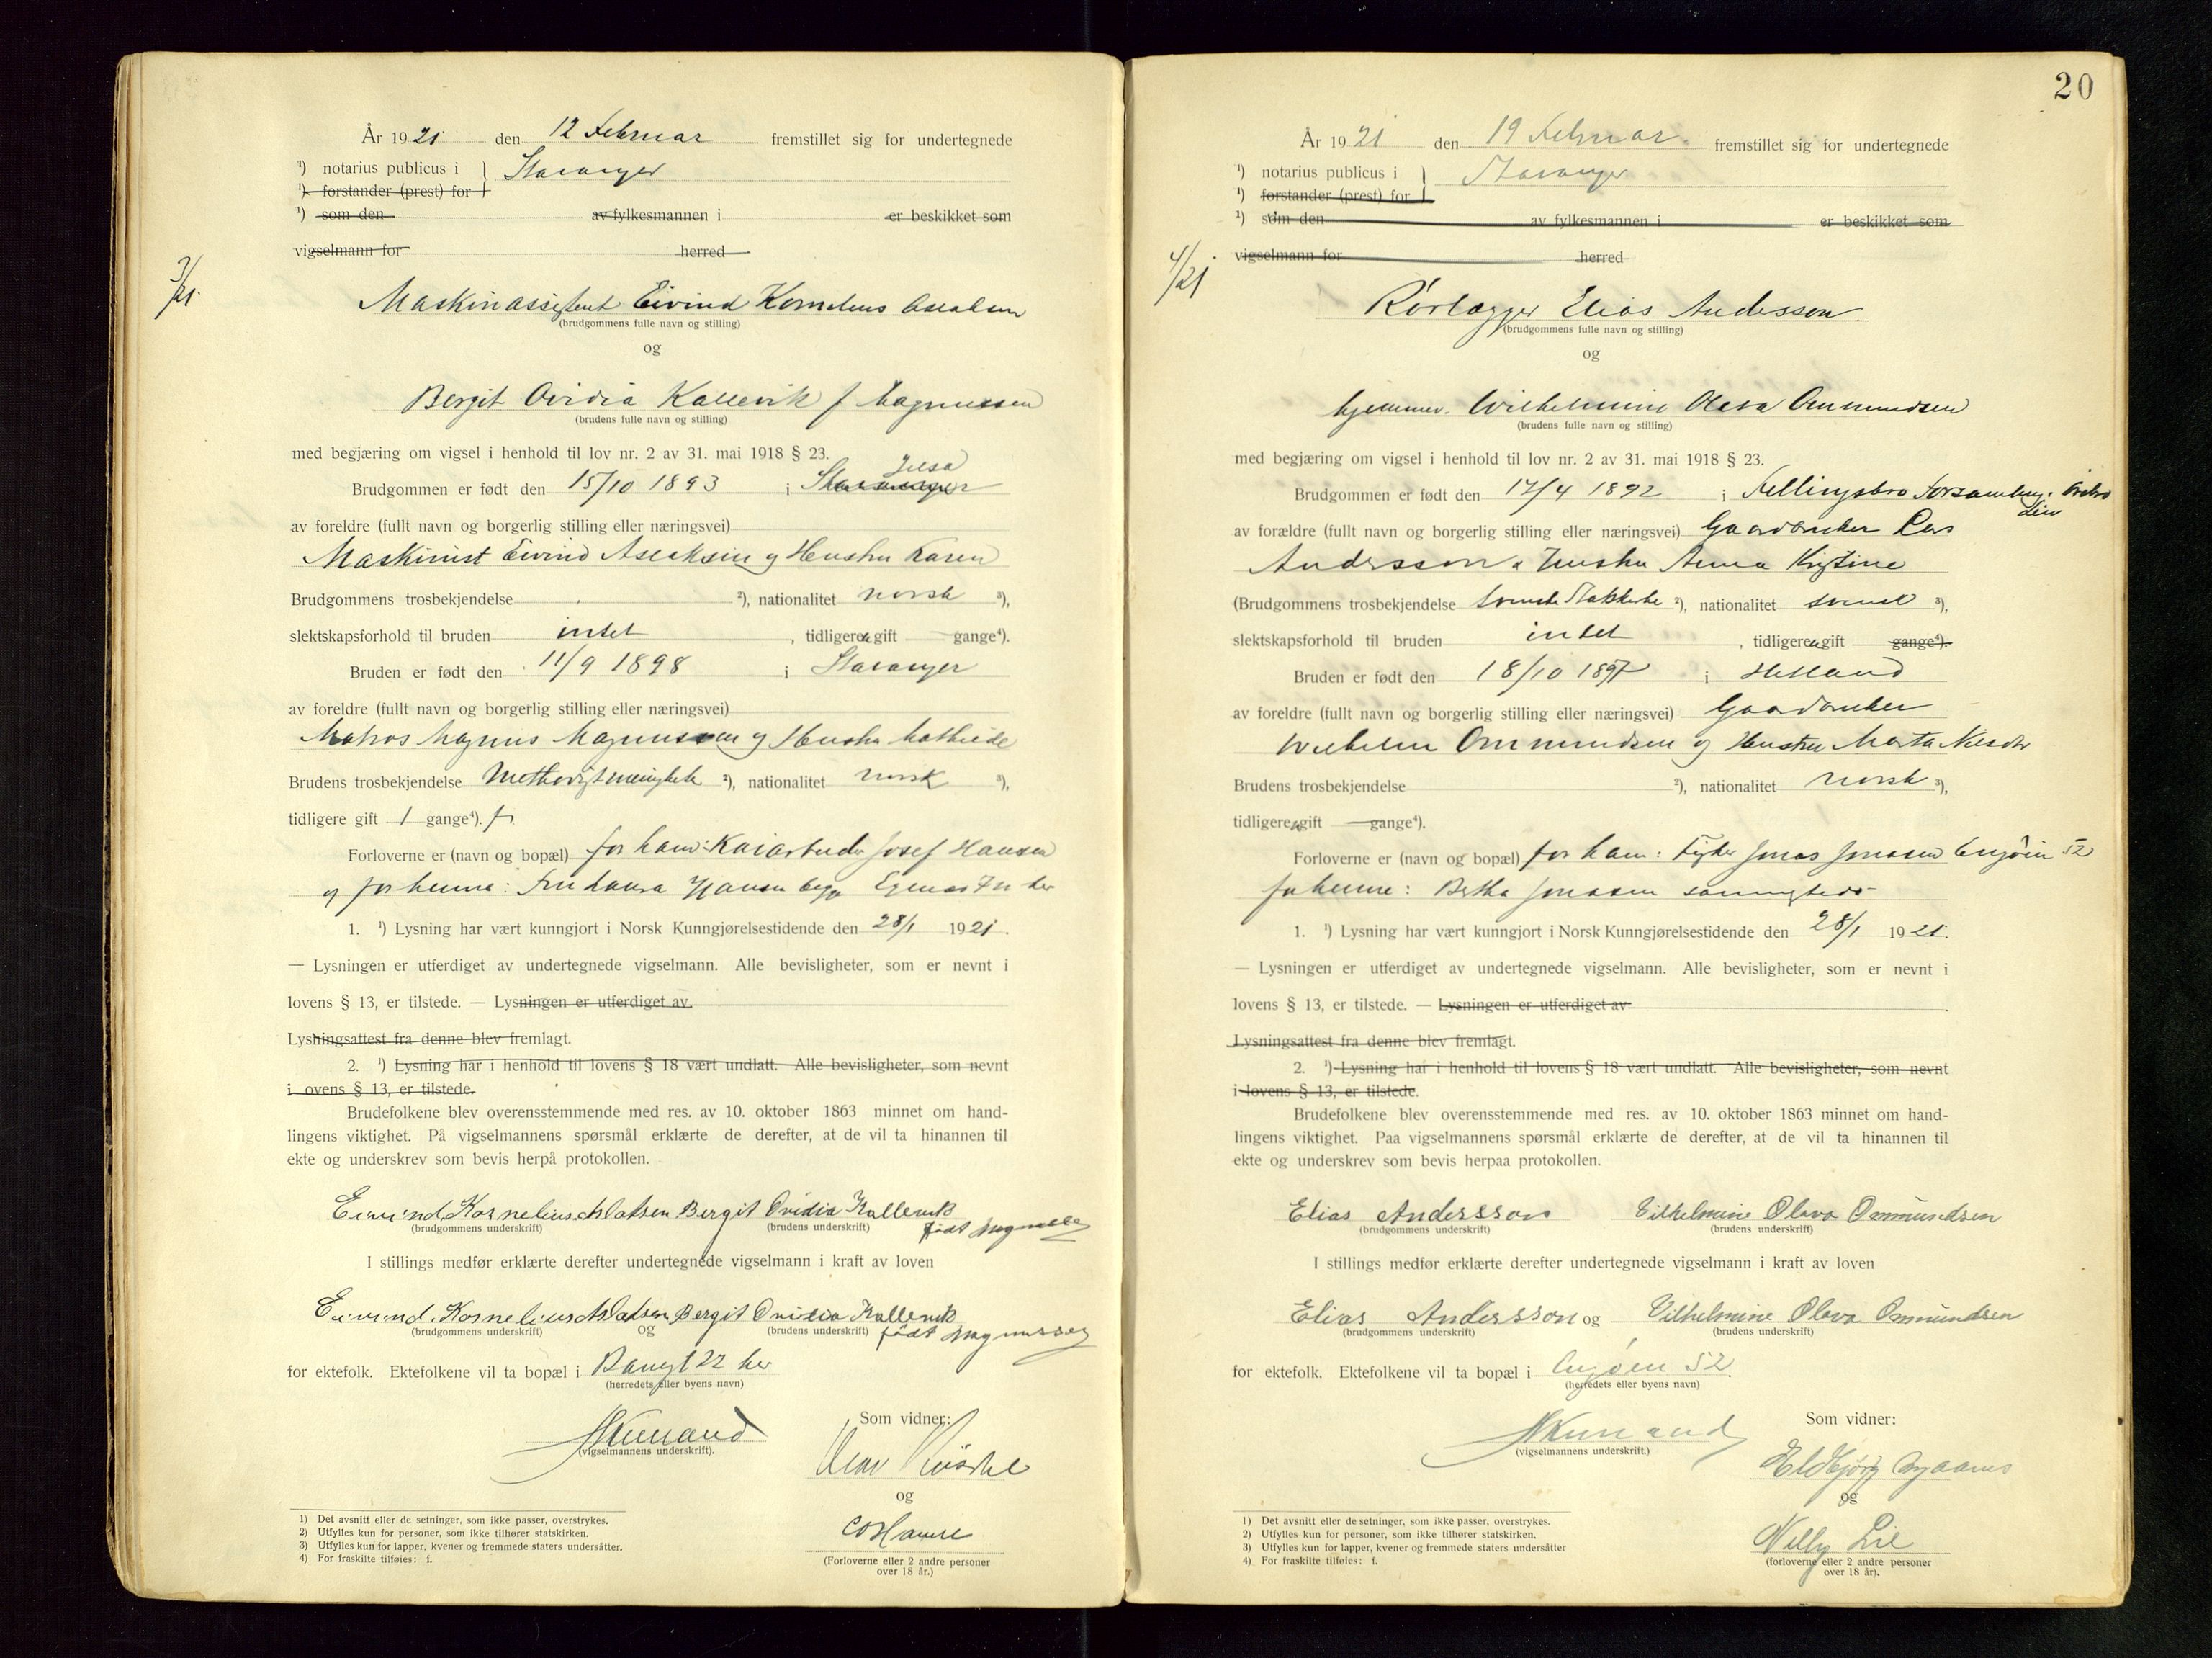 År 1921 den 12 Februar fremstillet sig for undertegnede
¹) notarius publicus i } Stavanger
¹) forstander (prest) for }
¹) som den av fylkesmannen i er beskikket som
vigselmann for herred
3/21.
Maskinassistent Eivind Kornelius Aslaksen
(brudgommens fulle navn og stilling)
og
Bergit Ovidia Kallevik f Magnussen
(brudens fulle navn og stilling)
med begjæring om vigsel i henhold til lov nr. 2 av 31. mai 1918 § 23.
Jelsa
Brudgommen er født den 15/10 1893 i Stavanger
av foreldre (fullt navn og borgerlig stilling eller næringsvei)
Maskinist Eivind Aslaksen og Hustru Karen
Brudgommens trosbekjendelse ²), nationalitet norsk ³),
slektskapsforhold til bruden intet , tidligere ei gift gange⁴).
Bruden er født den 11/9 1898 i Stavanger
av foreldre (fullt navn og borgerlig stilling eller næringsvei)
Matros Magnus Magnussen og Hustru Mathilde
Brudens trosbekjendelse Methodistmenighete ²), nationalitet norsk ³),
tidligere gift 1 gange⁴). f.
Forloverne er (navn og bopæl) for ham: Kaiarbeider Josef Hansen
og for henne: Fru Laura Hansen begge her
1. ¹) Lysning har vært kunngjort i Norsk Kunngjørelsestidende den 28/1 1921.
— Lysningen er utferdiget av undertegnede vigselmann. Alle bevisligheter, som er nevnt i
lovens § 13, er tilstede. — Lysningen er utferdiget av.
Lysningsattest fra denne blev fremlagt.
2. ¹) Lysning har i henhold til lovens § 18 vært undlatt. Alle bevisligheter, som nevnt
i ovens § 13, er tilstede.
Brudefolkene blev overensstemmende med res. av 10. oktober 1863 minnet om hand-
lingens viktighet. På vigselmannens spørsmål erklærte de derefter, at de vil ta hinannen til
ekte og underskrev som bevis herpå protokollen.
Eivind Kornelius Aslaksen Bergit Ovidia Kallevik
(brudgommens underskrift) (brudens underskrift) født Magnussen
I stillings medfør erklærte derefter undertegnede vigselmann i kraft av loven
Eivind Kornelius Aslaksen Bergit Ovidia Kallevik
(brudgommens underskrift) og (brudens underskrift) født Magnussen
for ektefolk. Ektefolkene vil ta bopæl i 22 her
(herredets eller byens navn)
Som vidner:
(vigselmannens underskrift).
og
(Forloverne eller 2 andre personer
over 18 år.)
1) Det avsnitt eller de setninger, som ikke passer, overstrykes.
2) Utfylles kun for personer, som ikke tilhører statskirken.
3) Utfylles kun for lapper, kvener og fremmede staters undersåtter.
4) For fraskilte tilføies: f.
20
År 1921 den 19 Februar. fremstillet sig for undertegnede
¹) notarius publicus i } Stavanger
¹) forstander (prest) for }
¹) som den av fylkesmannen i er beskikket som
vigselmann for herred
4/21
Rørlægger Elias Andersson
(brudgommens fulle navn og stilling)
og
hjemmev. Wilhelmine Olava Ommundsen
(brudens fulle navn og stilling)
med begjæring om vigsel i henhold til lov nr. 2 av 31. mai 1918 § 23.
Brudgommen er født den 17/4 1892 i Fellingsbro Forsamling, Örebro
Län
av forældre (fullt navn og borgerlig stilling eller næringsvei) Gaardbruker Lars
Andersson & Hustru Anna Kristine
(Brudgommens trosbekjendelse svenske Statskirke ²), nationalitet svensk ³),
slektskapsforhold til bruden intet , tidligere ei gift gange⁴).
Bruden er født den 18/10 1897 i Hetland
av foreldre (fullt navn og borgerlig stilling eller næringsvei) Gaardbruker
Wilhelm Ommundsen og Hustru Marta Nilsdtr
Brudens trosbekjendelse ²), nationalitet norsk ³),
tidligere ei gift gange⁴).
Forloverne er (navn og bopæl) for ham: Jonas Jonassen Engøen 52
for henne: Bertha Jonassen sammesteds
1. ¹) Lysning har vært kunngjort i Norsk Kunngjørelsestidende den 28/1 1921.
— Lysningen er utferdiget av undertegnede vigselmann. Alle bevisligheter, som er nevnt i
lovens § 13, er tilstede. — Lysningen er utferdiget av .
Lysningsattest fra denne blev fremlagt.
2. ¹) Lysning har i henhold til lovens § 18 vært undlatt. Alle bevisligheter, som nevnt
i lovens § 13, er tilstede.
Brudefolkene blev overensstemmende med res. av 10. oktober 1863 minnet om hand-
lingens viktighet. Paa vigselmannens spørsmål erklærte de derefter, at de vil ta hinannen til
ekte og underskrev som bevis herpaa protokollen.
Elias Andersson Vilhelmine Olava Ommundsen
(brudgommens underskrift) (brudens underskrift)
I stillings medfør erklærte derefter undertegnede vigselmann i kraft av loven
Elias Andersson og Vilhelmine Olava Ommundsen
(brudgommens underskrift) (brudens underskrift)
for ektefolk. Ektefolkene vil ta bopæl i Engøen 52.
(herredets eller byens navn)
Som vidner:
(vigselmannens underskrift.)
Eldbjørg
og
Willy Lie
(forloverne eller 2 andre personer
over 18 år).
1) Det avsnitt eller de setninger, som ikke passer, overstrykes.
2) Utfylles kun for personer, som ikke tilhører statskirken.
3) Utfylles kun for lapper, kvener og fremmede staters undersåtter
4) For fraskilte tilføies: f.